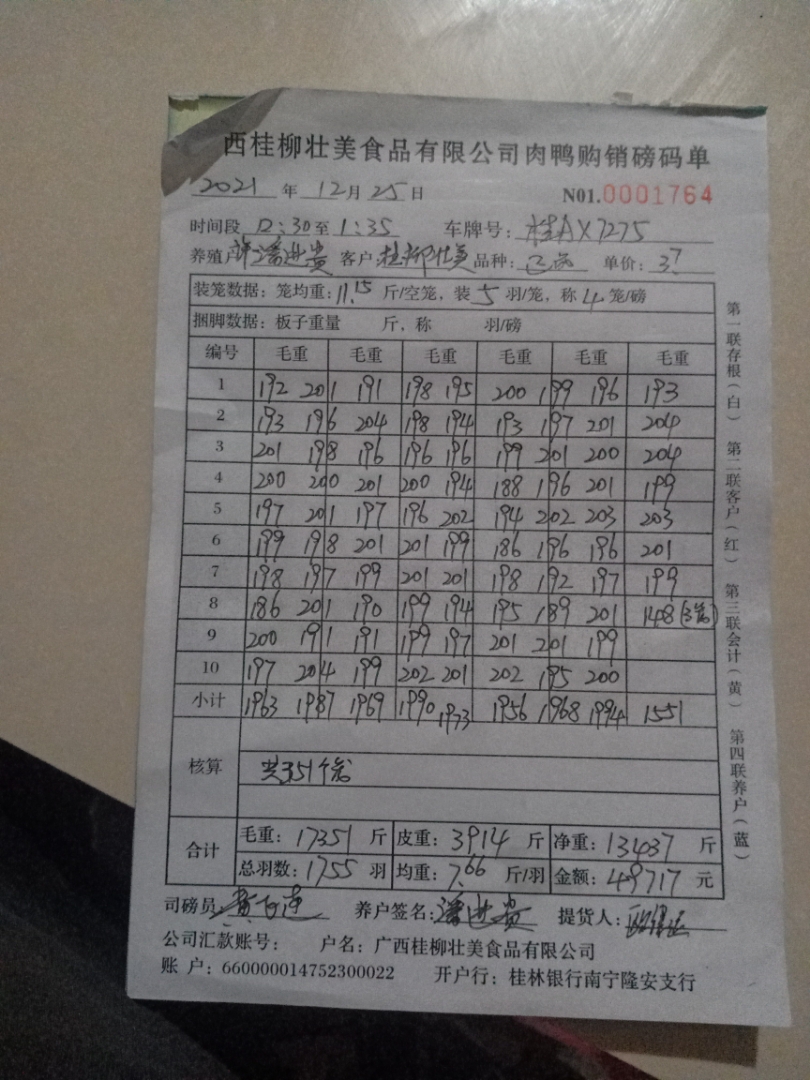 西桂柳壮美食品有限公司肉鸭购销磅码单
2021 年 12 月 25 日 N01.0001764
时间段 12:30 至 1:35 车牌号: 桂AX7275
养殖户 潘进贵 客户 桂柳壮美 品种: 单价: 3.7
装笼数据: 笼均重: 11.15 斤/空笼, 装 5 羽/笼, 称 4 笼/磅
捆脚数据: 板子重量 斤, 称 羽/磅
编号 毛重 毛重 毛重 毛重 毛重 毛重
1 192 201 191 198 195 200 199 196 193
2 193 196 204 198 194 193 197 201 204
3 201 198 196 196 196 199 201 200 204
4 200 200 201 200 194 188 196 201 199
5 197 201 197 196 202 194 202 203 203
6 199 198 201 201 199 186 196 196 201
7 198 197 199 201 201 198 192 197 199
8 186 201 190 199 194 195 189 201 148(3笼)
9 200 191 191 199 197 201 201 199
10 197 204 199 202 201 202 195 200
小计 1963 1987 1969 1990 1973 1956 1968 1994 1551
核算 共351个笼
合计 毛重: 17351 斤 皮重: 3914 斤 净重: 13437 斤
总羽数: 1755 羽 均重: 7.66 斤/羽 金额: 49717 元
司磅员 养户签名: 潘进贵 提货人:
公司汇款账号: 户名: 广西桂柳壮美食品有限公司
账 户: 660000014752300022 开户行: 桂林银行南宁隆安支行
第一联存根(白) 第二联客户(红) 第三联会计(黄) 第四联养户(蓝)